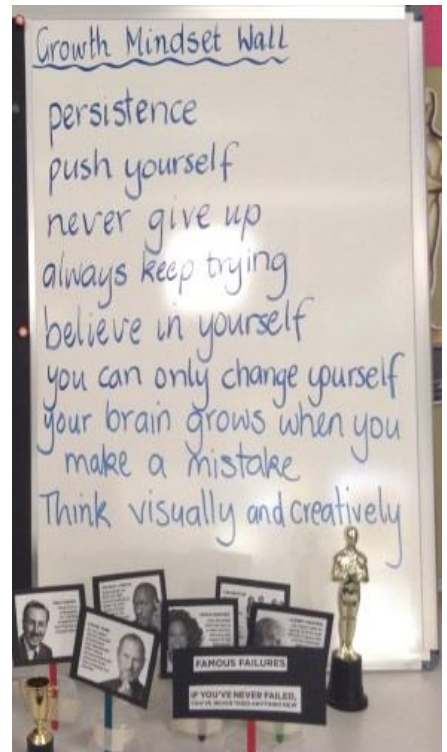 Growth Mindset Wall
persistence
push yourself
never give up
always keep trying
believe in yourself
you can only change yourself
your brain grows when you
make a mistake
Think visually and creatively
FAMOUS FAILURES
IF YOU'VE NEVER FAILED,
YOU'VE NEVER TRIED ANYTHING NEW